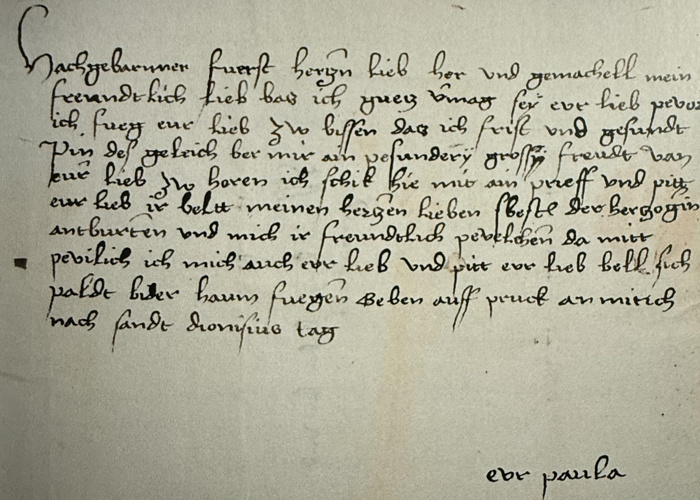 Hachgebarnner fuerst hertzn lieb her vnd gemachell mein
freundtlich lieb bas ich guetz vermag sey eur lieb pevor
ich fueg eur lieb zw bissen das ich frist vnd gesundt
Pin des geleich ber mir ain pesundery grossy freudt van
eur lieb zw horen ich schik hie mit ain prieff vnd pitt
eur lieb ir beltt meinen hertzen lieben sbestl der hergogin
antburten vnd mich ir freundtlich pevelchen da mitt
pevilich ich mich auch eur lieb vnd pitt eur lieb bell sich
paldt bider haum fuegen Geben auff pruck an mitich
nach sandt dionisius tag
eur paula